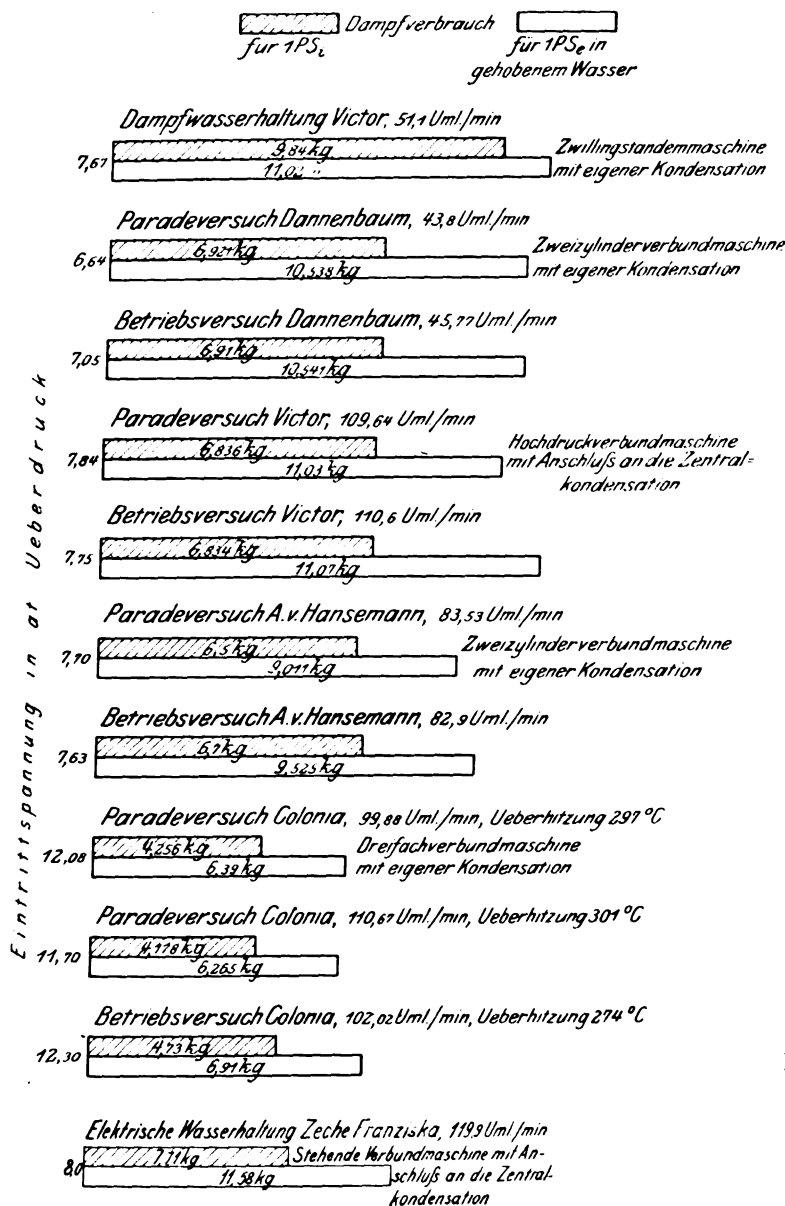 Dampfverbrauch
für 1PSi
für 1PSe in
gehobenem Wasser
Eintrittspannung in at Ueberdruck
Dampfwasserhaltung Victor, 51,1 Uml./min
7,67
9,84 kg
Zwillingstandemmaschine
mit eigener Kondensation
Paradeversuch Dannenbaum, 43,8 Uml./min
6,64
6,921 kg
10,538 kg
Zweizylinderverbundmaschine
mit eigener Kondensation
Betriebsversuch Dannenbaum, 45,77 Uml./min
7,05
6,91 kg
10,541 kg
Paradeversuch Victor, 109,64 Uml./min
7,84
6,836 kg
11,03 kg
Hochdruckverbundmaschine
mit Anschluß an die Zentral=
kondensation
Betriebsversuch Victor, 110,6 Uml./min
7,75
6,834 kg
11,07 kg
Paradeversuch A.v.Hansemann, 83,53 Uml./min
7,70
6,5 kg
9,011 kg
Zweizylinderverbundmaschine
mit eigener Kondensation
Betriebsversuch A.v.Hansemann, 82,9 Uml./min
7,63
6,7 kg
9,525 kg
Paradeversuch Colonia, 99,88 Uml./min, Ueberhitzung 297 °C
12,08
4,256 kg
6,39 kg
Dreifachverbundmaschine
mit eigener Kondensation
Paradeversuch Colonia, 110,67 Uml./min, Ueberhitzung 301 °C
11,70
4,178 kg
6,265 kg
Betriebsversuch Colonia, 102,02 Uml./min, Ueberhitzung 274 °C
12,30
4,73 kg
6,91 kg
Elektrische Wasserhaltung Zeche Franziska, 119,9 Uml/min
8,0
11,58 kg
Stehende Verbundmaschine mit An-
schluß an die Zentral-
kondensation